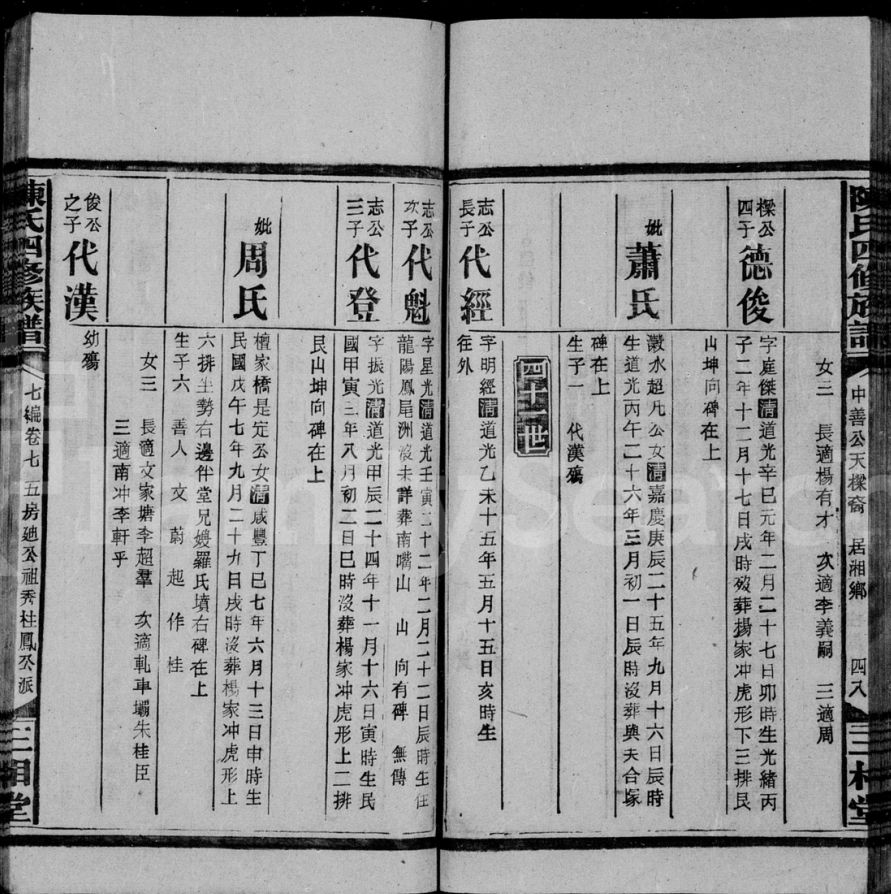 陳氏四修族譜
中善公天樑裔 居湘鄉
四八
三相堂
女三 長適楊有才 次適李義嗣 三適周
樑公四子
德俊
字庭傑清道光辛巳元年二月二十七日卯時生光緒丙
子二年十二月十七日戌時歿葬楊家冲虎形下三排艮
山坤向碑在上
妣
蕭氏
澂水超凡公女清嘉慶庚辰二十五年九月十六日辰時
生道光丙午二十六年三月初一日辰時沒葬與夫合塚
碑在上
生子一 代漢殤
四十一世
志公長子
代經
字明經清道光乙未十五年五月十五日亥時生
往外
志公次子
代魁
字星光清道光壬寅二十二年二月二十二日辰時生住
龍陽鳳尾洲沒未詳葬南嘴山 山向有碑 無傳
志公三子
代登
字振光清道光甲辰二十四年十一月十六日寅時生民
國甲寅三年八月初二日巳時沒葬楊家冲虎形上二排
艮山坤向碑在上
妣
周氏
檀家橋是定公女清咸豐丁巳七年六月十三日申時生
民國戊午七年九月二十九日戌時沒葬楊家冲虎形上
六排坐勢右邊伴堂兄嫂羅氏墳右碑在上
生子六 善人 文 蔚 起 作 桂
女三 長適文家塘李超羣 次適軋車壩朱桂臣
三適南冲李軒乎
俊公之子
代漢
幼殤
陳氏四修族譜
七編卷七 五房廸公祖秀桂鳳公派
三相堂